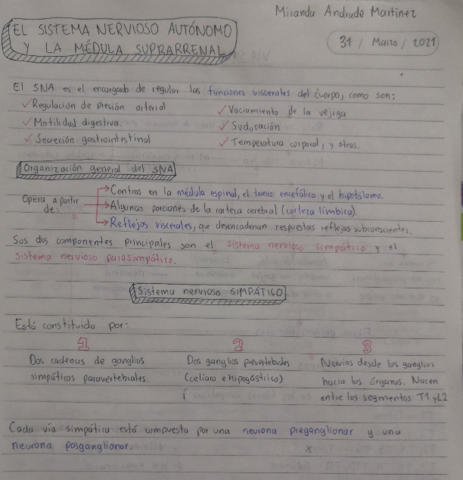 Miranda Andrade Martínez
EL SISTEMA NERVIOSO AUTÓNOMO
Y LA MÉDULA SUPRARRENAL
31 / Marzo / 2021
El SNA es el encargado de regular las funciones viscerales del cuerpo, como son:
✓ Regulación de presión arterial
✓ Motilidad digestiva.
✓ Secreción gastrointestinal
✓ Vaciamiento de la vejiga
✓ Sudoración
✓ Temperatura corporal, y otros.
Organización general del SNA
Opera a partir
de:
→ Centros en la médula espinal, el tronco encefálico y el hipotálamo.
→ Algunas porciones de la corteza cerebral (corteza límbica).
→ Reflejos viscerales, que desencadenan respuestas reflejas subconscientes.
Sus dos componentes principales son el sistema nervioso simpático y el
sistema nervioso parasimpático.
Sistema nervioso SIMPÁTICO
Está constituido por:
1
Dos cadenas de ganglios
simpáticos paravertebrales.
2
Dos ganglios prevertebrales
(celíaco e hipogástrico)
3
Nervios desde los ganglios
hacia los órganos. Nacen
entre los segmentos T1 y L2
Cada vía simpática está compuesta por una neurona preganglionar y una
neurona posganglionar.